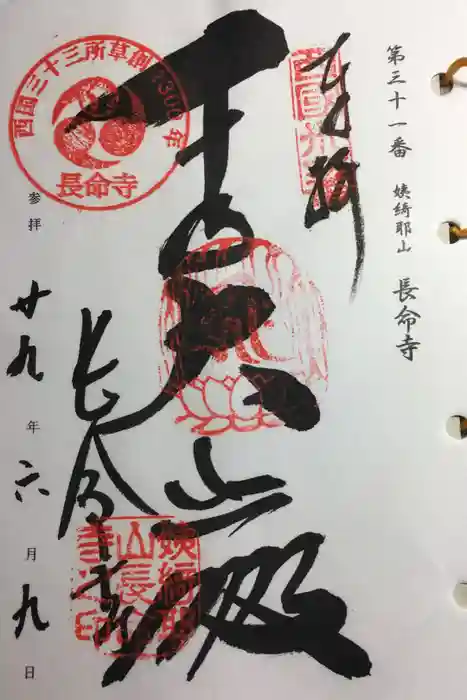 第三十一番 姨綺耶山 長命寺
奉拝
長命寺
西国三十三所草創1300年
長命寺
姨綺耶山長命寺之印
参拝 廿九年六月九日